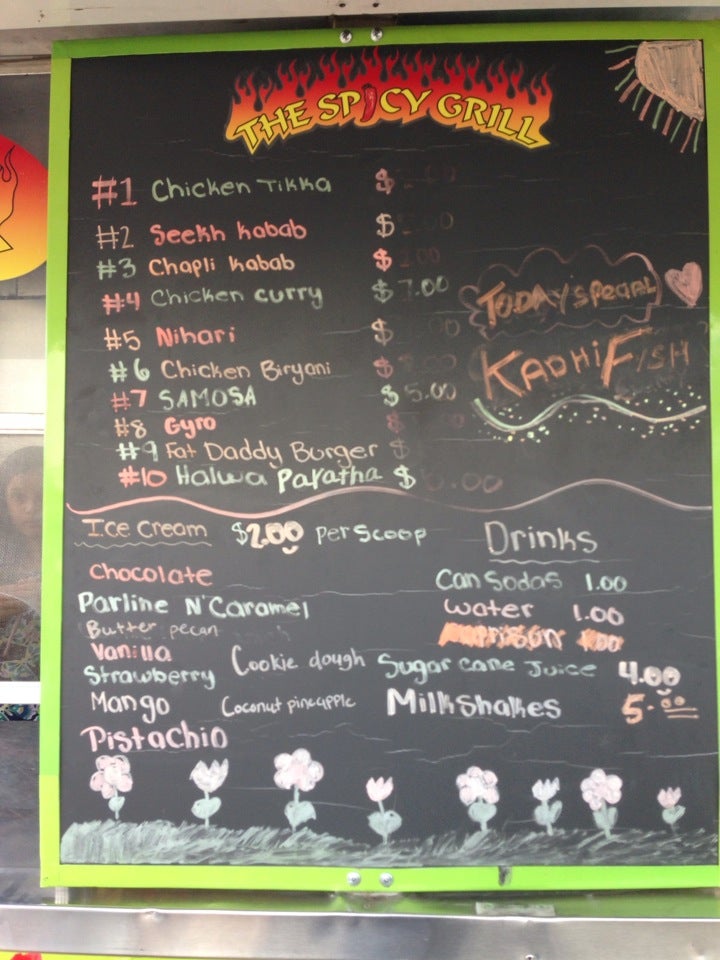 THE SPICY GRILL
#1 Chicken Tikka $
#2 Seekh kabab $
#3 Chapli kabab $
#4 Chicken curry $ 7.00
#5 Nihari $
#6 Chicken Biryani $
#7 SAMOSA $ 5.00
#8 Gyro $
#9 Fat Daddy Burger $
#10 Halwa Paratha $
TODAY'S
KADHI FISH
Ice Cream $2.00 per Scoop
Chocolate
Parline N' Caramel
Butter pecan
Vanilla
Strawberry
Mango
Pistachio
Cookie dough
Coconut pineapple
Drinks
Can Sodas 1.00
water 1.00
Sugar cane Juice 4.00
Milkshakes 5.00